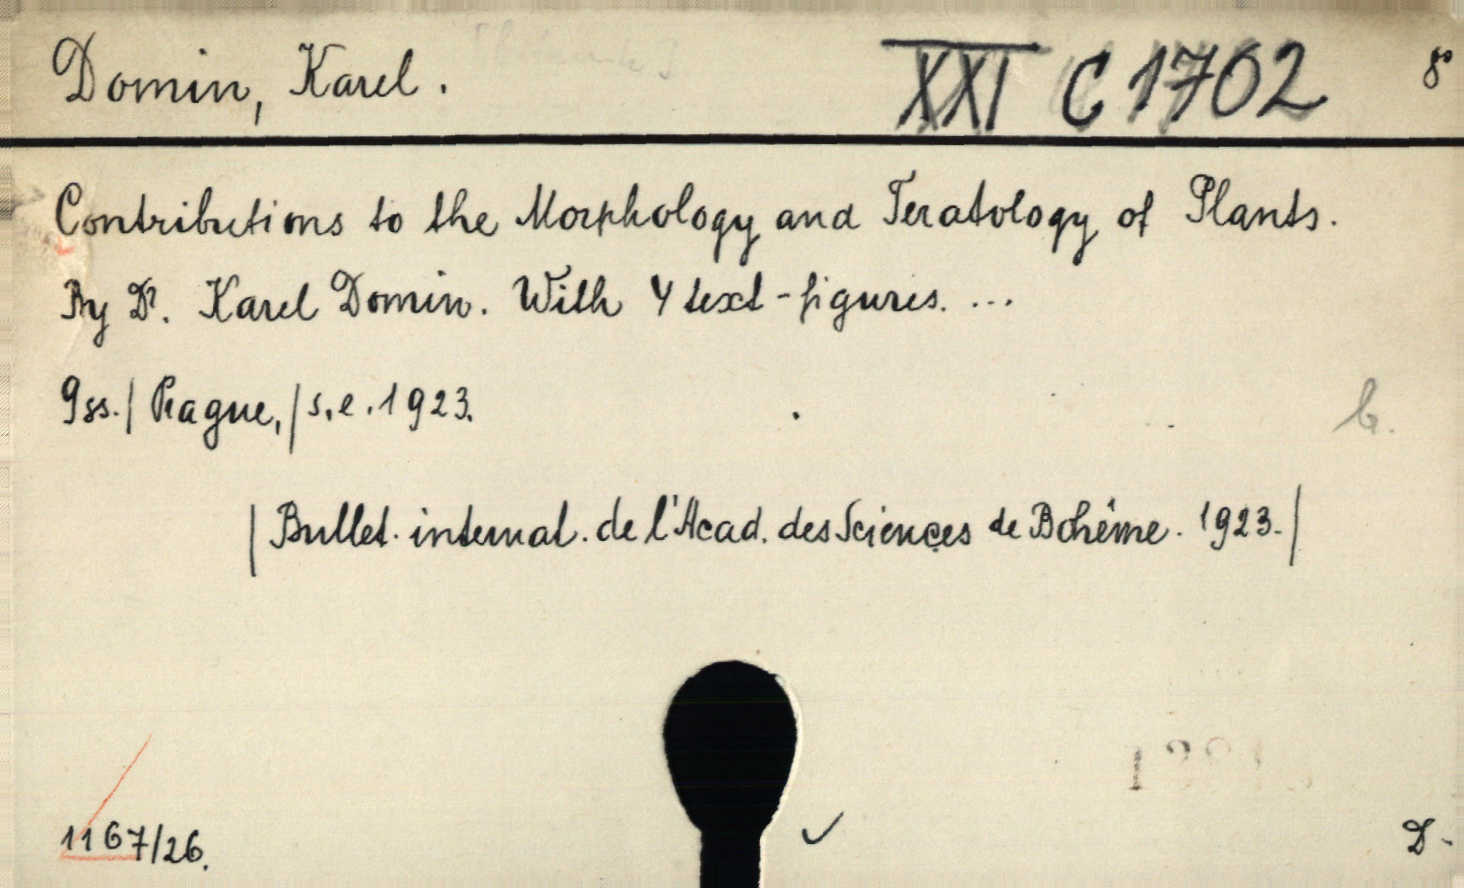 Domin, Karel. XXI C 1702 8°
Contributions to the Morphology and Teratology of Plants.
By Dr. Karel Domin. With 4 text-figures. ...
9ss. | Prague, | s.e. 1923. b.
| Bullet. internat. de l'Acad. des Sciences de Bohême. 1923. |
1167/26. D.